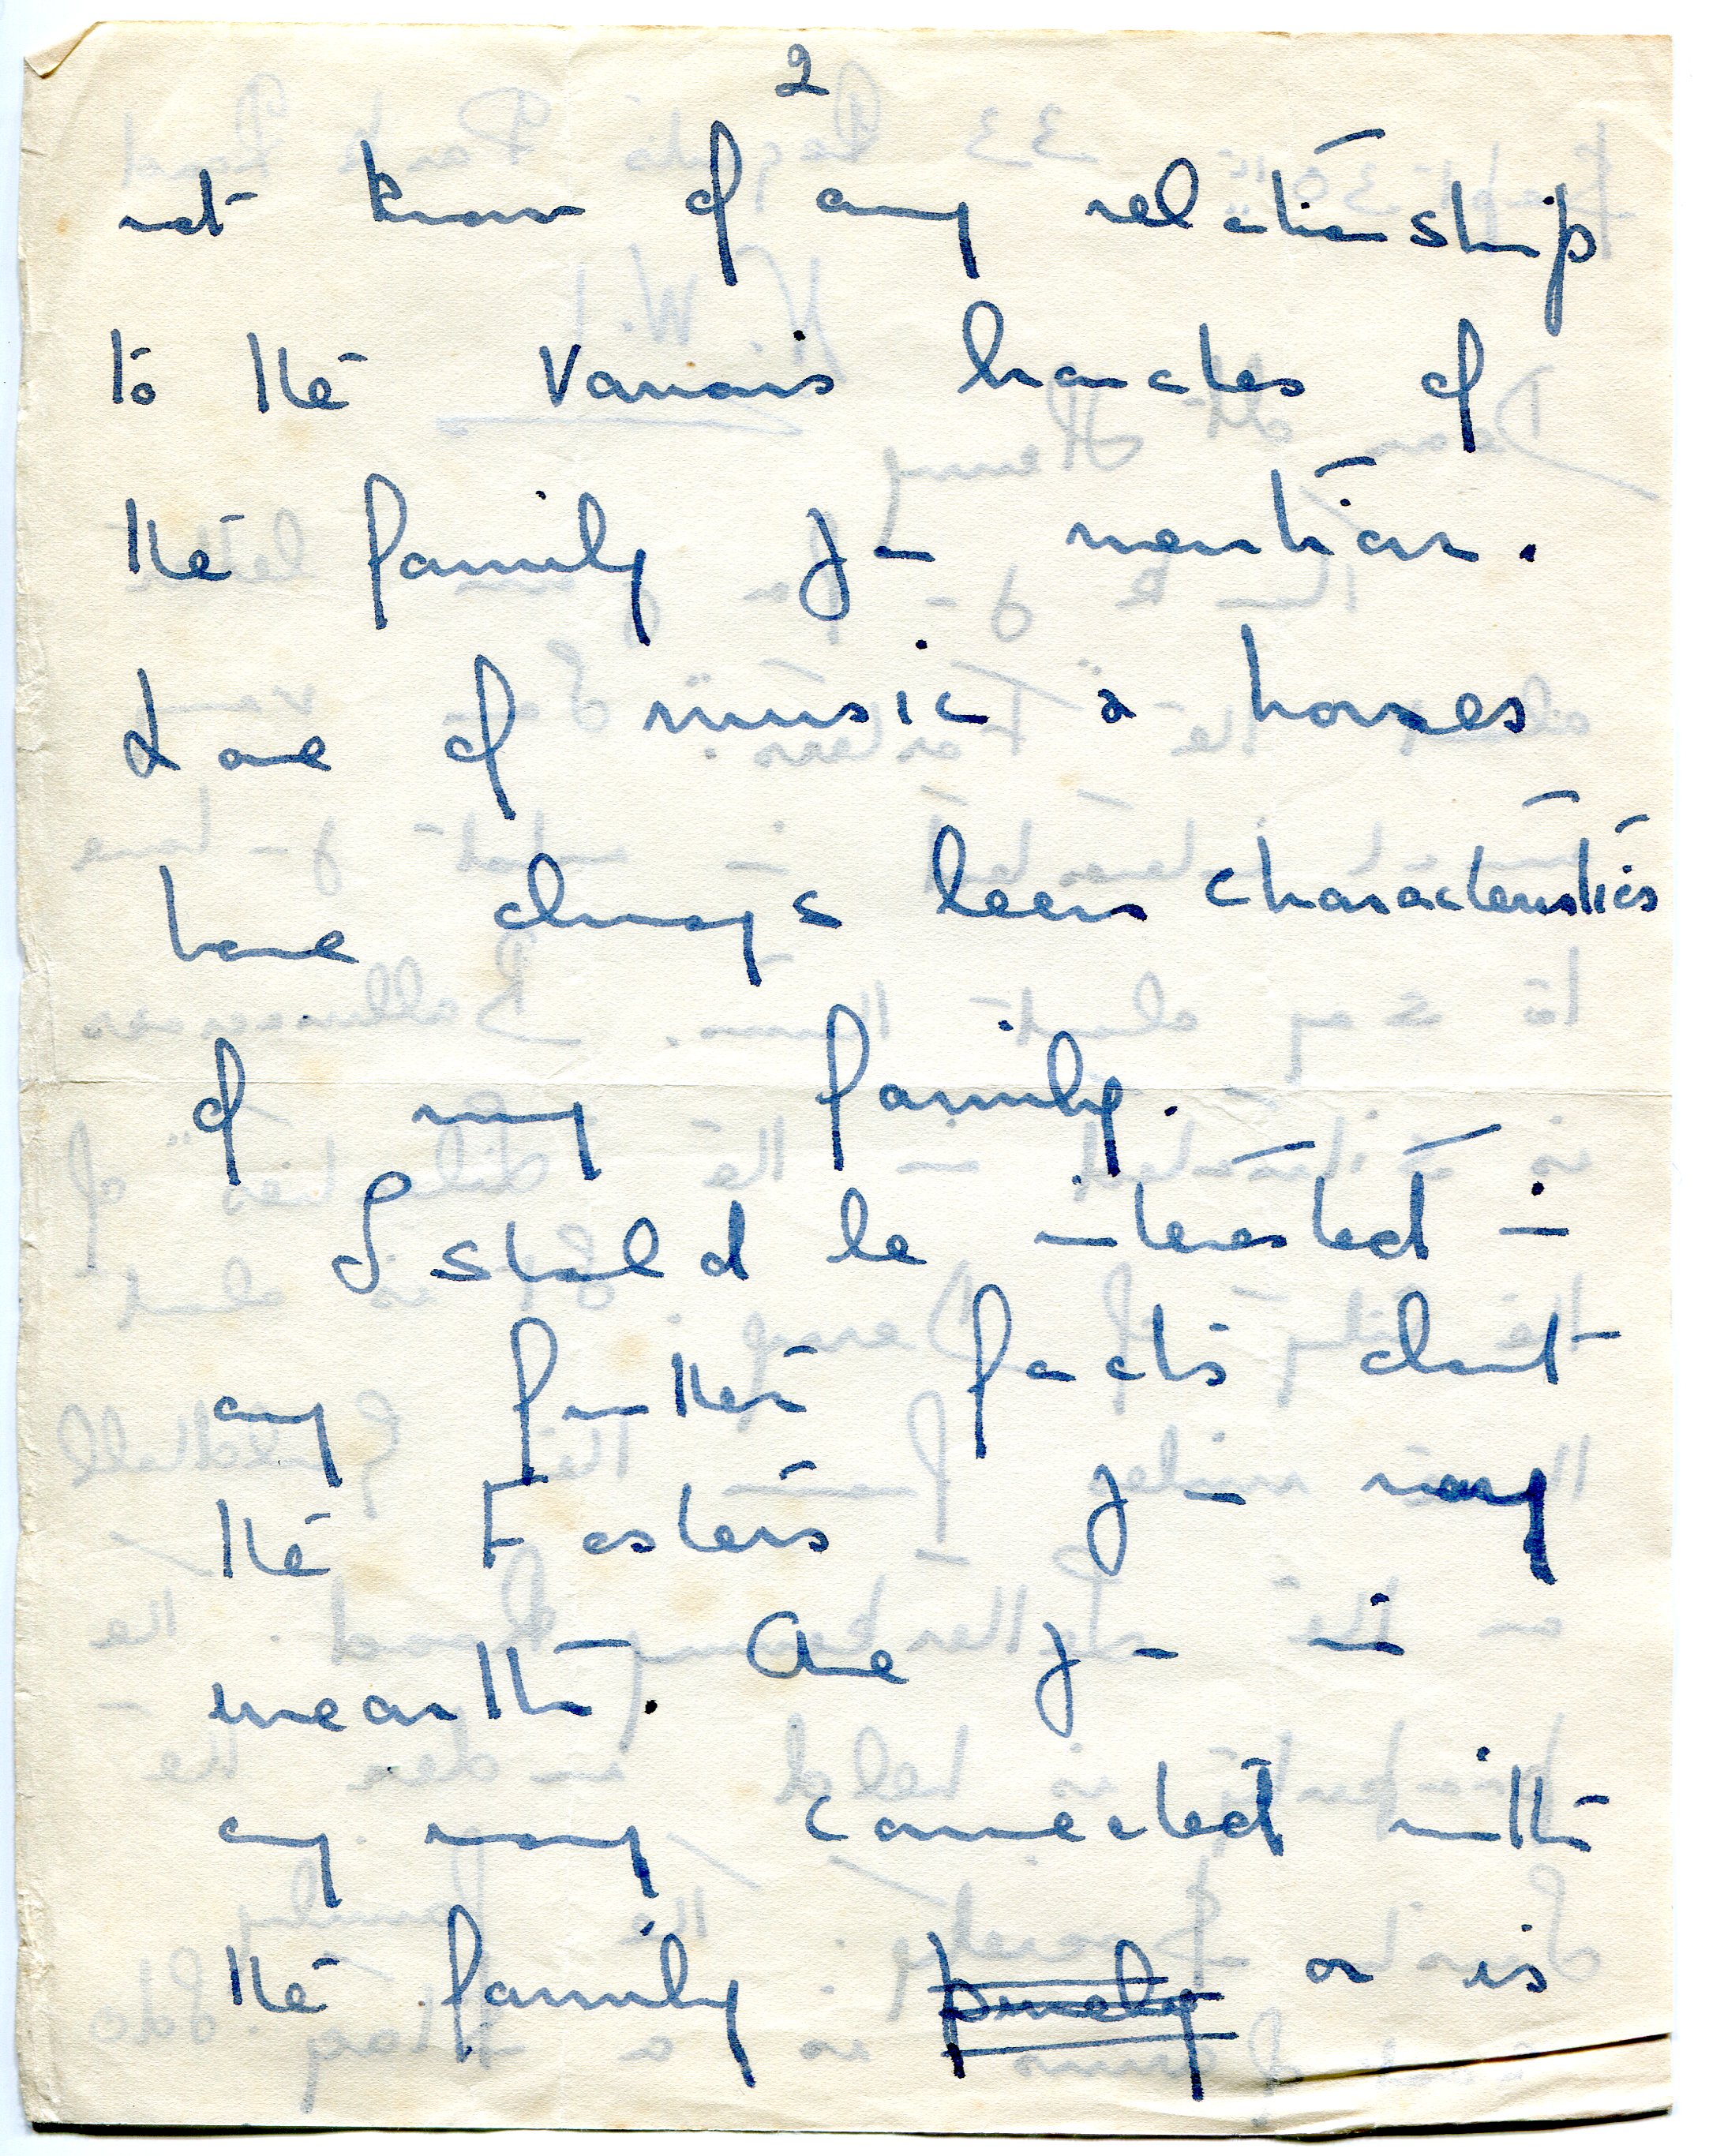 2
not know of any relationship
to the various branches of
the family you mention.
Love of music & horses
have always been characteristics
of my family.
I should be interested in
any further facts about
the Fosters you may
unearth. Are you in
any way connected with
the family ~~purely~~ or is